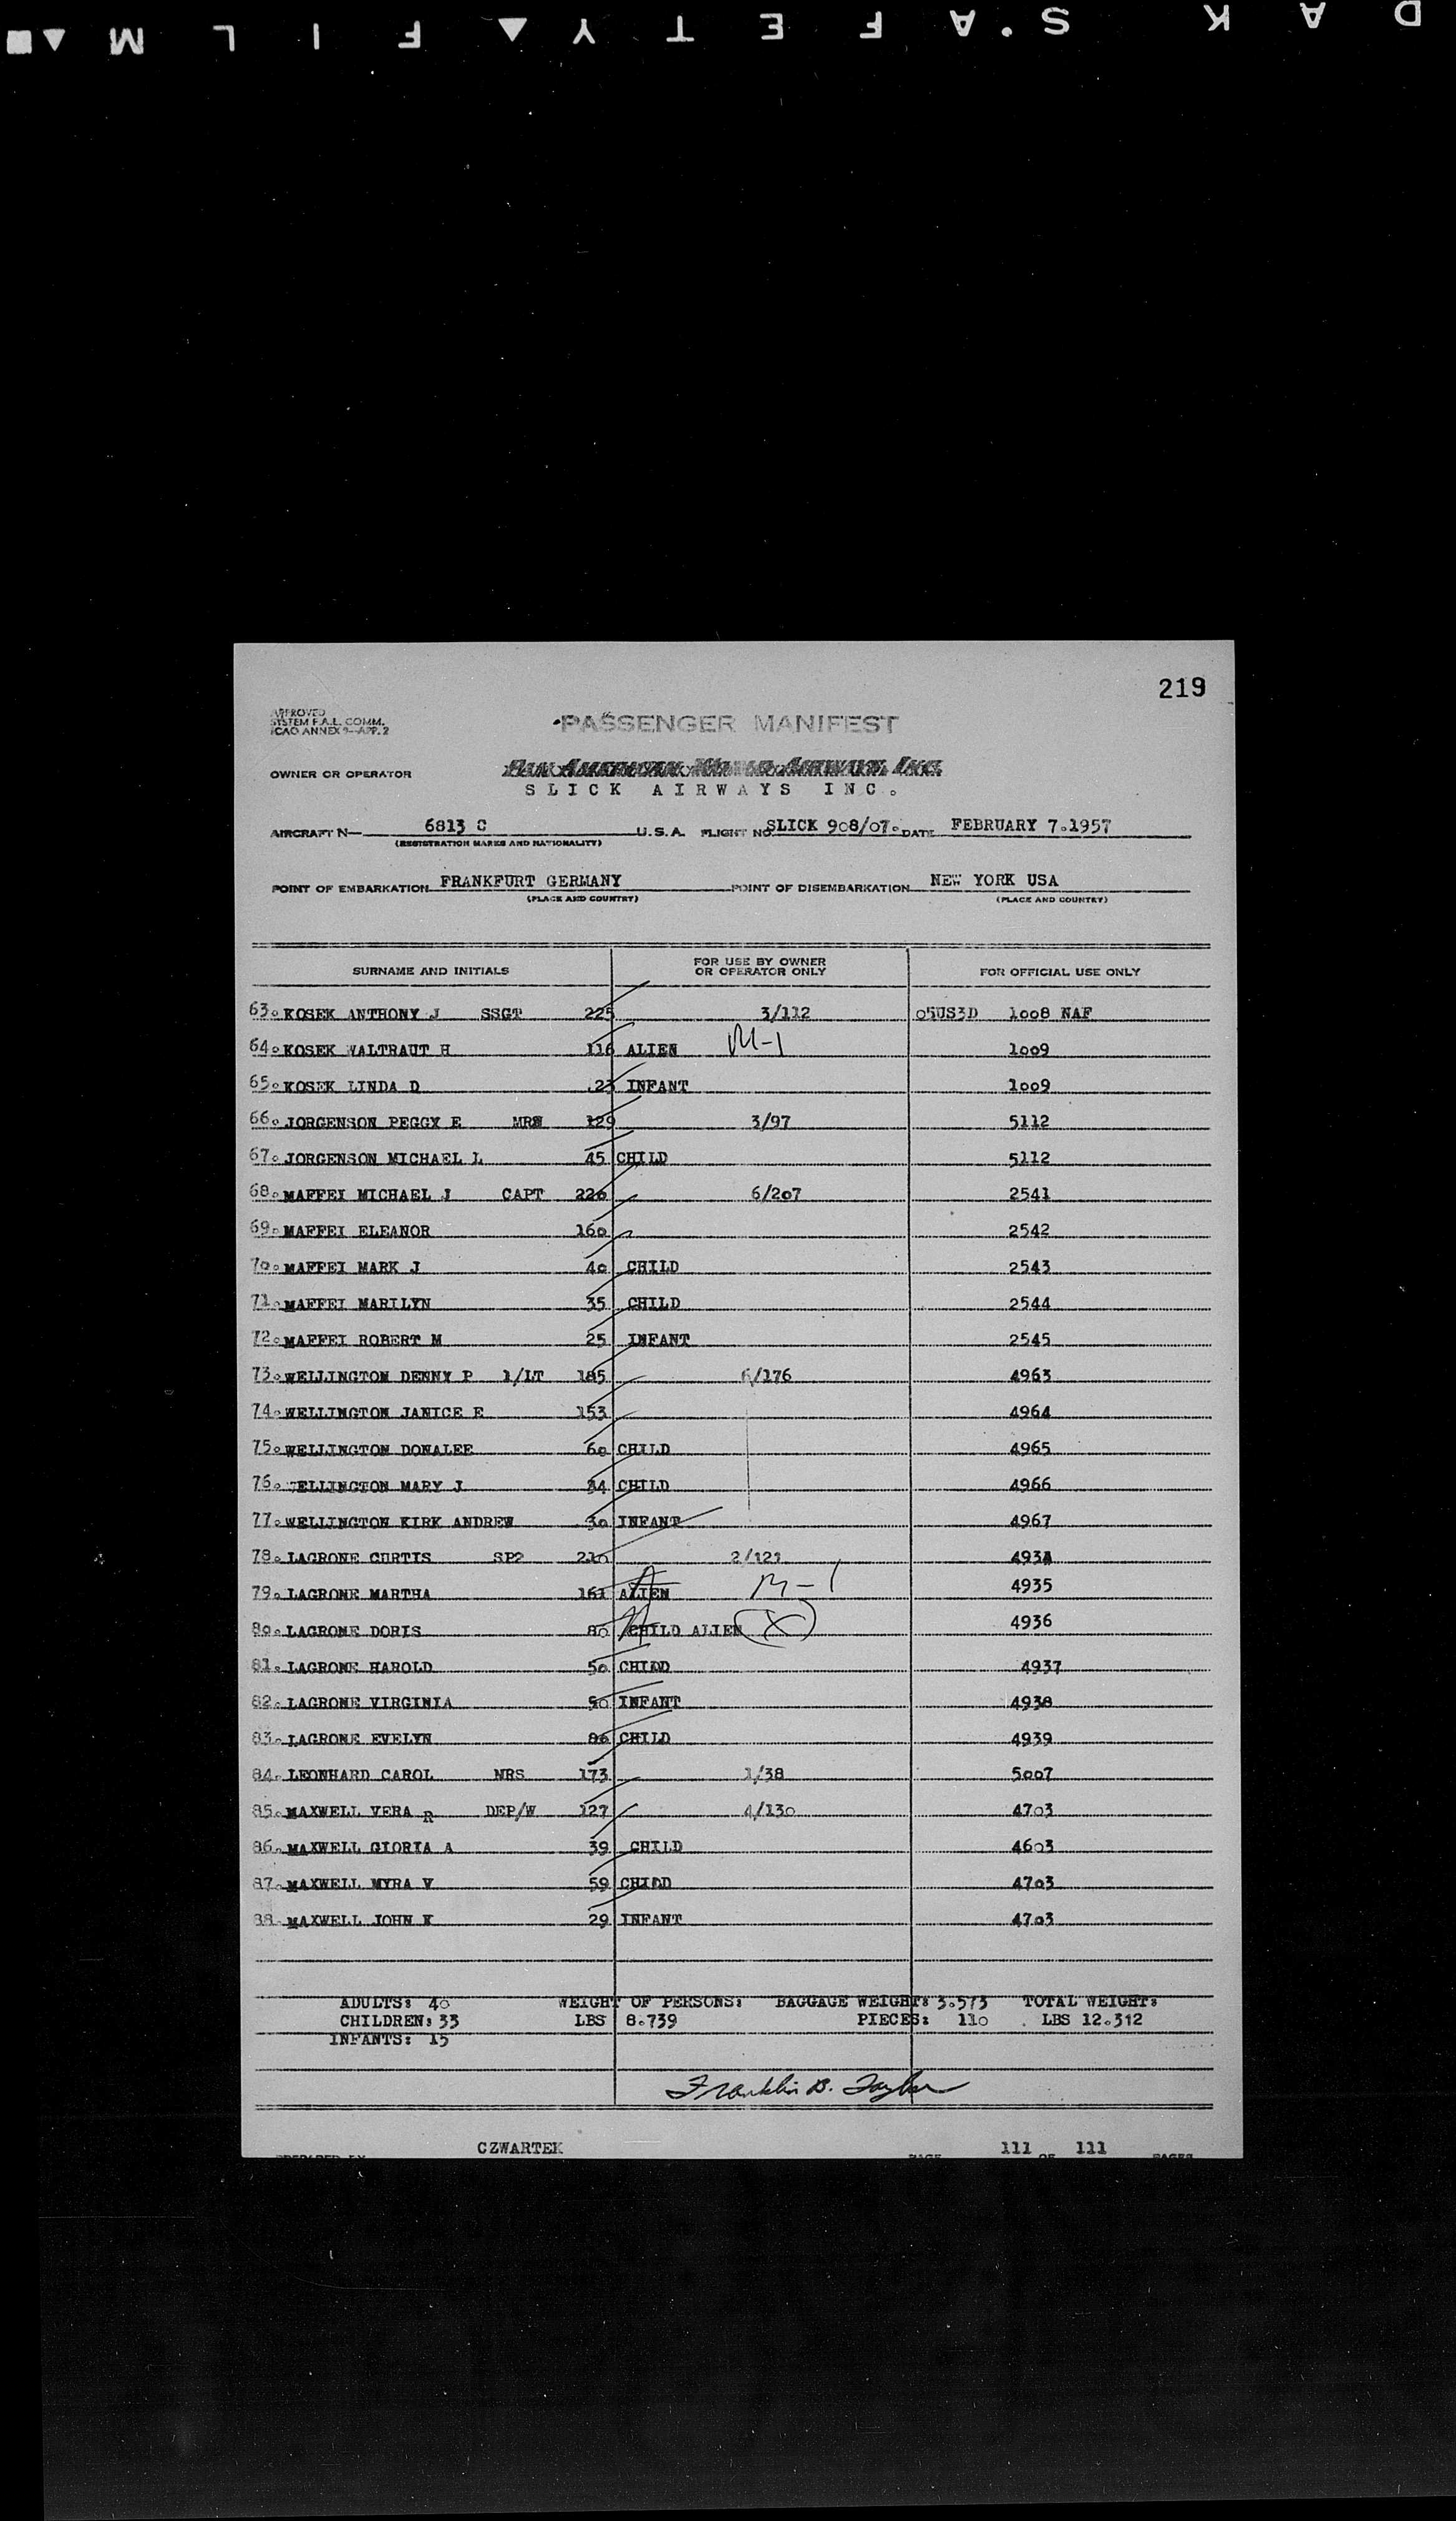 219
APPROVED
SYSTEM F.A.L. COMM.
ICAO ANNEX 9-APP. 2
PASSENGER MANIFEST
OWNER OR OPERATOR
SLICK AIRWAYS INC.
AIRCRAFT N— 6813 C U.S.A. FLIGHT NO. SLICK 908/07. DATE FEBRUARY 7.1957
(REGISTRATION MARKS AND NATIONALITY)
POINT OF EMBARKATION FRANKFURT GERMANY POINT OF DISEMBARKATION NEW YORK USA
(PLACE AND COUNTRY) (PLACE AND COUNTRY)
SURNAME AND INITIALS FOR USE BY OWNER OR OPERATOR ONLY FOR OFFICIAL USE ONLY
63. KOSEK ANTHONY J SSGT 225 3/112 05US3D 1008 NAF
64. KOSEK WALTRAUT H 116 ALIEN M-1 1009
65. KOSEK LINDA D 23 INFANT 1009
66. JORGENSON PEGGY E 129 3/97 5112
67. JORGENSON MICHAEL L 45 CHILD 5112
68. MAFFEI MICHAEL J CAPT 226 6/207 2541
69. MAFFEI ELEANOR 160 2542
70. MAFFEI MARK J 40 CHILD 2543
71. MAFFEI MARILYN 35 CHILD 2544
72. MAFFEI ROBERT M 25 INFANT 2545
73. WELLINGTON DENNY P 1/LT 185 6/176 4963
74. WELLINGTON JANICE E 153 4964
75. WELLINGTON DONALEE 60 CHILD 4965
76. WELLINGTON MARY J CHILD 4966
77. WELLINGTON KIRK ANDREW 30 INFANT 4967
78. LAGRONE CURTIS SP2 210 2/121
79. LAGRONE MARTHA 161 ALIEN M-1 4935
80. LAGRONE DORIS 80 CHILD ALIEN (X) 4936
81. LAGRONE HAROLD 50 CHIDD 4937
82. LAGRONE VIRGINIA INFANT 4938
83. LAGRONE EVELYN CHILD 4939
84. LEONHARD CAROL MRS 173 1/38 5007
85. MAXWELL VERA R DEP/W 127 4/130 4703
86. MAXWELL GLORIA A 39 CHILD 4603
87. MAXWELL MYRA V 59 CHIDD 4703
88. MAXWELL JOHN K 29 INFANT 4703
ADULTS: 40 WEIGHT OF PERSONS: BAGGAGE WEIGHT: 3.573 TOTAL WEIGHT:
CHILDREN: 33 LBS 8.739 PIECES: 110 LBS 12.312
INFANTS: 15
Franklin B. Taylor
CZWARTEK 111 OF 111
PREPARED BY PAGE PAGES
DAK SAFETY FILM